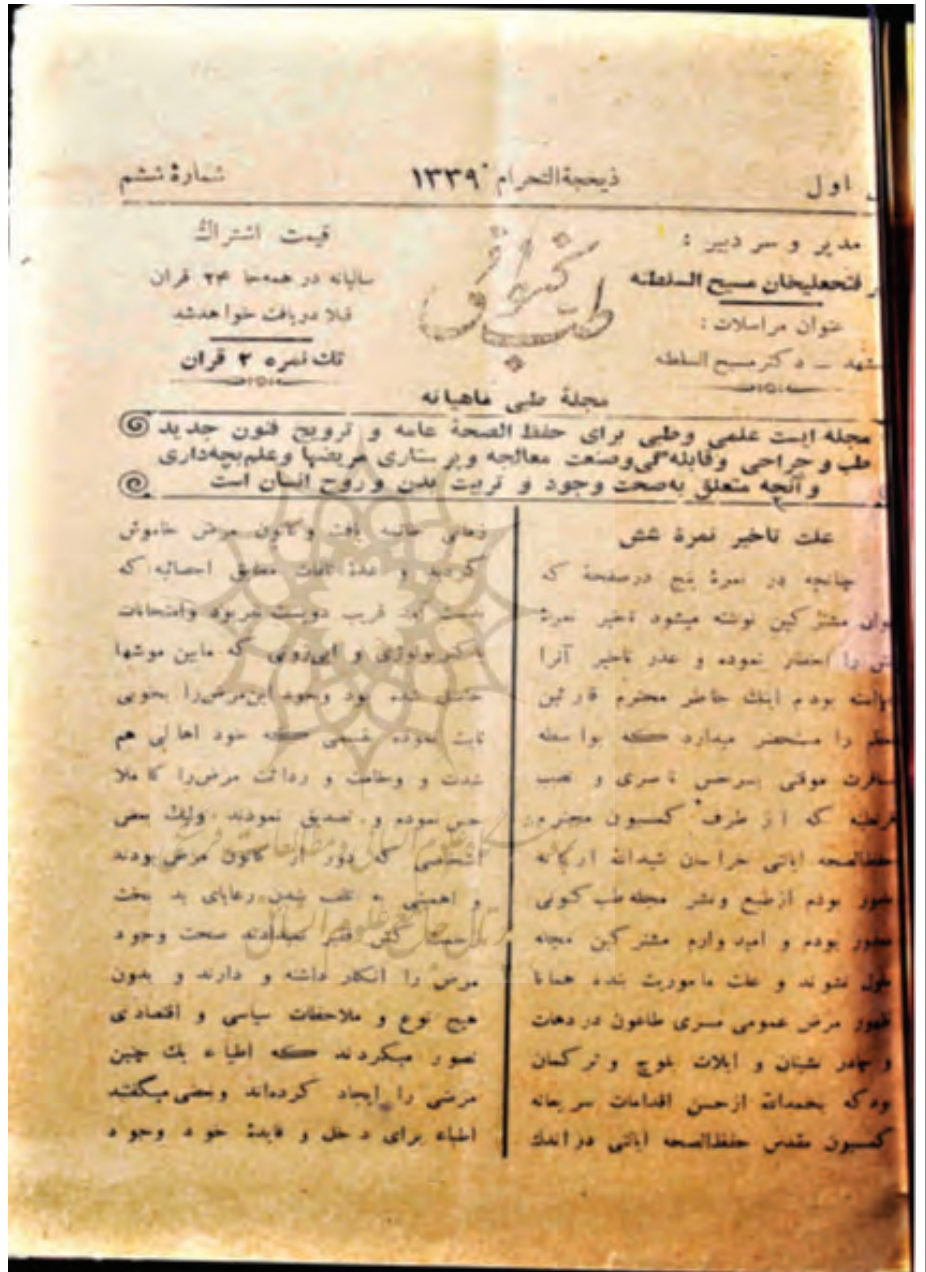 اول
ذیحجةالتحرام ۱۳۳۹
شمارهٔ ششم
مدیر و سر دبیر :
فتحعلیخان مسیح السلطنه
عنوان مراسلات :
دکتر مسیح السلطنه
طب کنونی
قیمت اشتراک
سالیانه در همه‌جا ۲۴ قران
قبلا دریافت خواهدشد
تك نمره ۲ قران
مجلهٔ طبی ماهیانه
مجله ایست علمی وطبی برای حفظ الصحهٔ عامه و ترویج فنون جدید
طب و جراحی وقابله‌گی وصنعت معالجه وپرستاری مریضها وعلم بچه‌داری
و آنچه متعلق به‌صحت وجود و تربیت بدن و روح انسان است
علت تاخیر نمرهٔ شش
چنانچه در نمرهٔ پنج درصفحهٔ که
مشترکین نوشته میشود تاخیر نمرهٔ
را اخطار نموده و عذر تاخیر آنرا
بودم اینك خاطر محترم قارئین
را مستحضر میدارد که بواسطه
مسافرت موقتی بسرخس ناصری و
که از طرف کمسیون محترم
حفظ‌الصحه ایالتی خراسان شیدالله ارکانه
بودم ازطبع ونشر مجله طب کنونی
معذور بودم و امیدوارم مشترکین مجله
ملول نشوند و علت ماموریت بنده همانا
ظهور مرض عمومی مسری طاعون دردهات
و چادر نشینان و ایلات بلوچ و ترکمان
بودکه بحمدالله ازحسن اقدامات سریعانه
کمسیون مقدس حفظ‌الصحه ایالتی دراندك
زمانی خاتمه یافت وکانون مرض خاموش
گردید و عدهٔ تلفات مطابق احصائیه که
بدست آمد قریب دویست نفربود وامتحانات
باکتریولوژی و که مابین موشها
حاصل شده بود وجود این‌مرض‌را بخوبی
ثابت نموده بقسمی که خود اهالی هم
شدت و وخامت و ردائت مرض‌را کاملا
حس نموده و تصدیق نمودند ولیك بعضی
اشخاصی که دور از کانون مرض بودند
و اهمیتی به تلف شدن رعایای بد بخت
زحمت کش فقیر نمیدادند صحت وجود
مرض را انکار داشته و دارند و بدون
هیچ نوع و ملاحظات سیاسی و اقتصادی
تصور میکردند که اطباء یك چنین
مرضی را ایجاد کرده‌اند وبعضی میگفتند
اطباء برای دخل و فایدهٔ خود وجود